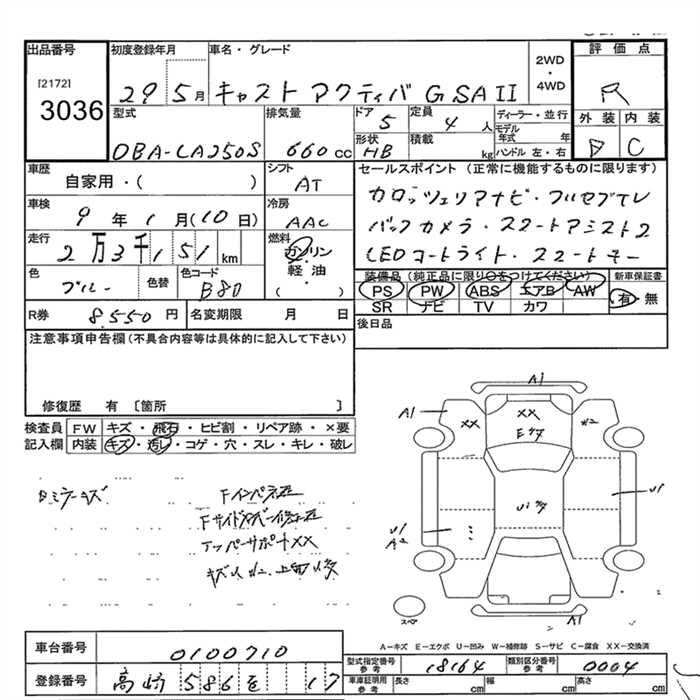 出品番号
[2172]
3036
初度登録年月
29 5月
車名・グレード
キャスト アクティバ G SAⅡ
2WD
・
4WD
評価点
R
型式
DBA-LA250S
排気量
660 cc
ドア
5
定員
4 人
形状
HB
積載
kg
ディーラー・並行
モデル年式 年
ハンドル 左・右
外装 内装
D C
車歴
自家用・( )
シフト
AT
車検
9年1月(10日)
冷房
AAC
走行
2万3千151km
燃料
ガソリン
軽・油
( )
色
ブルー
色替
色コード
B80
セールスポイント (正常に機能するものに限ります)
カロッツェリアナビ・フルセグTV
バックカメラ・スマートアシスト2
LEDコートライト・スマートキー
装備品 (純正品に限り○をつけてください)
新車保証書
PS PW ABS エアB AW
SR ナビ TV カワ
有・無
R券
8,550円
名変期限 月 日
後日品
注意事項申告欄(不具合内容等は具体的に記入して下さい)
修復歴 有 〔箇所 〕
検査員
記入欄
FW キズ・飛石・ヒビ割・リペア跡・×要
内装 キズ・汚レ・コゲ・穴・スレ・キレ・破レ
Fインパネ
アッパーサポートXX
A1
A1
XX
XX
U1
U1
A2
A1
スペア
A-キズ E-エクボ U-凹み W-補修跡 S-サビ C-腐食 XX-交換済
車台番号
0100710
登録番号
高崎 586 を 17
型式指定番号
参考
18164
類別区分番号
参考
0004
車庫証明用
参考
長さ cm
幅 cm
高さ cm